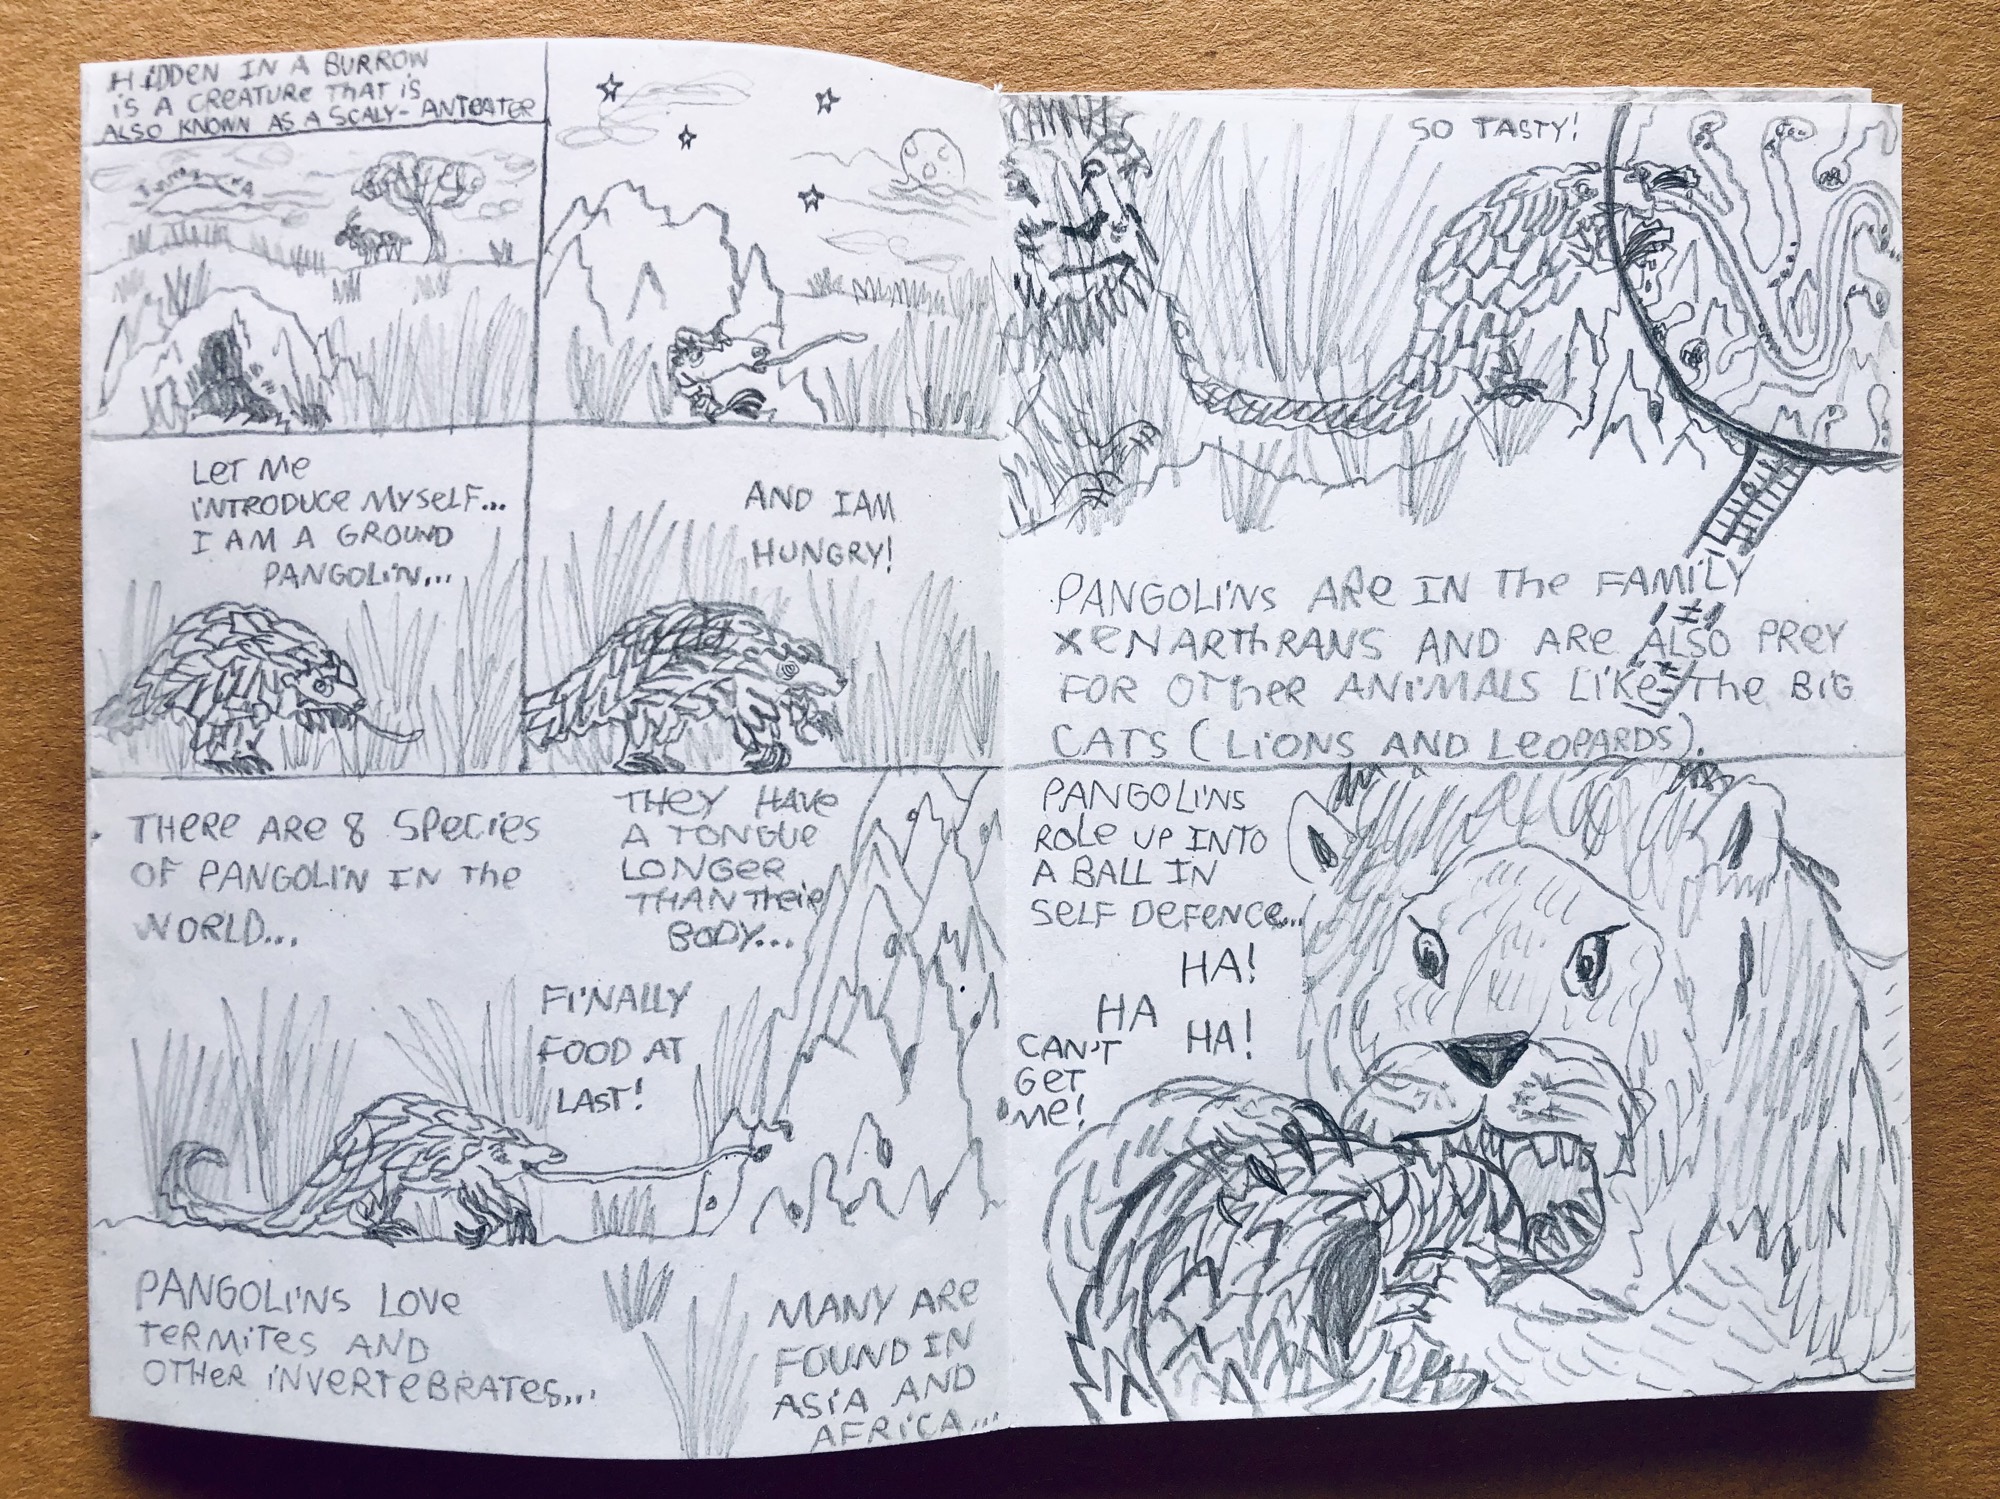 HIDDEN IN A BURROW
iS A CREATURE THAT iS
ALSO KNOWN AS A SCALY-ANTEATER
LET Me
iNTRODUCE MYSELF...
I AM A GROUND
PANGOLiN...
AND I AM
HUNGRY!
THERE ARE 8 SPECIES
OF PANGOLiN IN The
WORLD...
THEY HAVE
A TONGUE
LONGER
THAN THEiR
BODY...
FiNALLY
FOOD AT
LAST!
PANGOLiNS LOVE
TERMiTES AND
OTHER iNVERTEBRATES...
MANY ARE
FOUND IN
ASiA AND
AFRiCA...
SO TASTY!
PANGOLiNS ARe IN The FAMiLY
XENARThRANS AND ARe ALSO PREY
FOR OTHeR ANiMALS LiKe The BiG
CATS (LiONS AND LeOPARDS).
PANGOLiNS
ROLE UP INTO
A BALL IN
SELF DEFENCE...
HA!
HA
HA!
CAN'T
GET
ME!